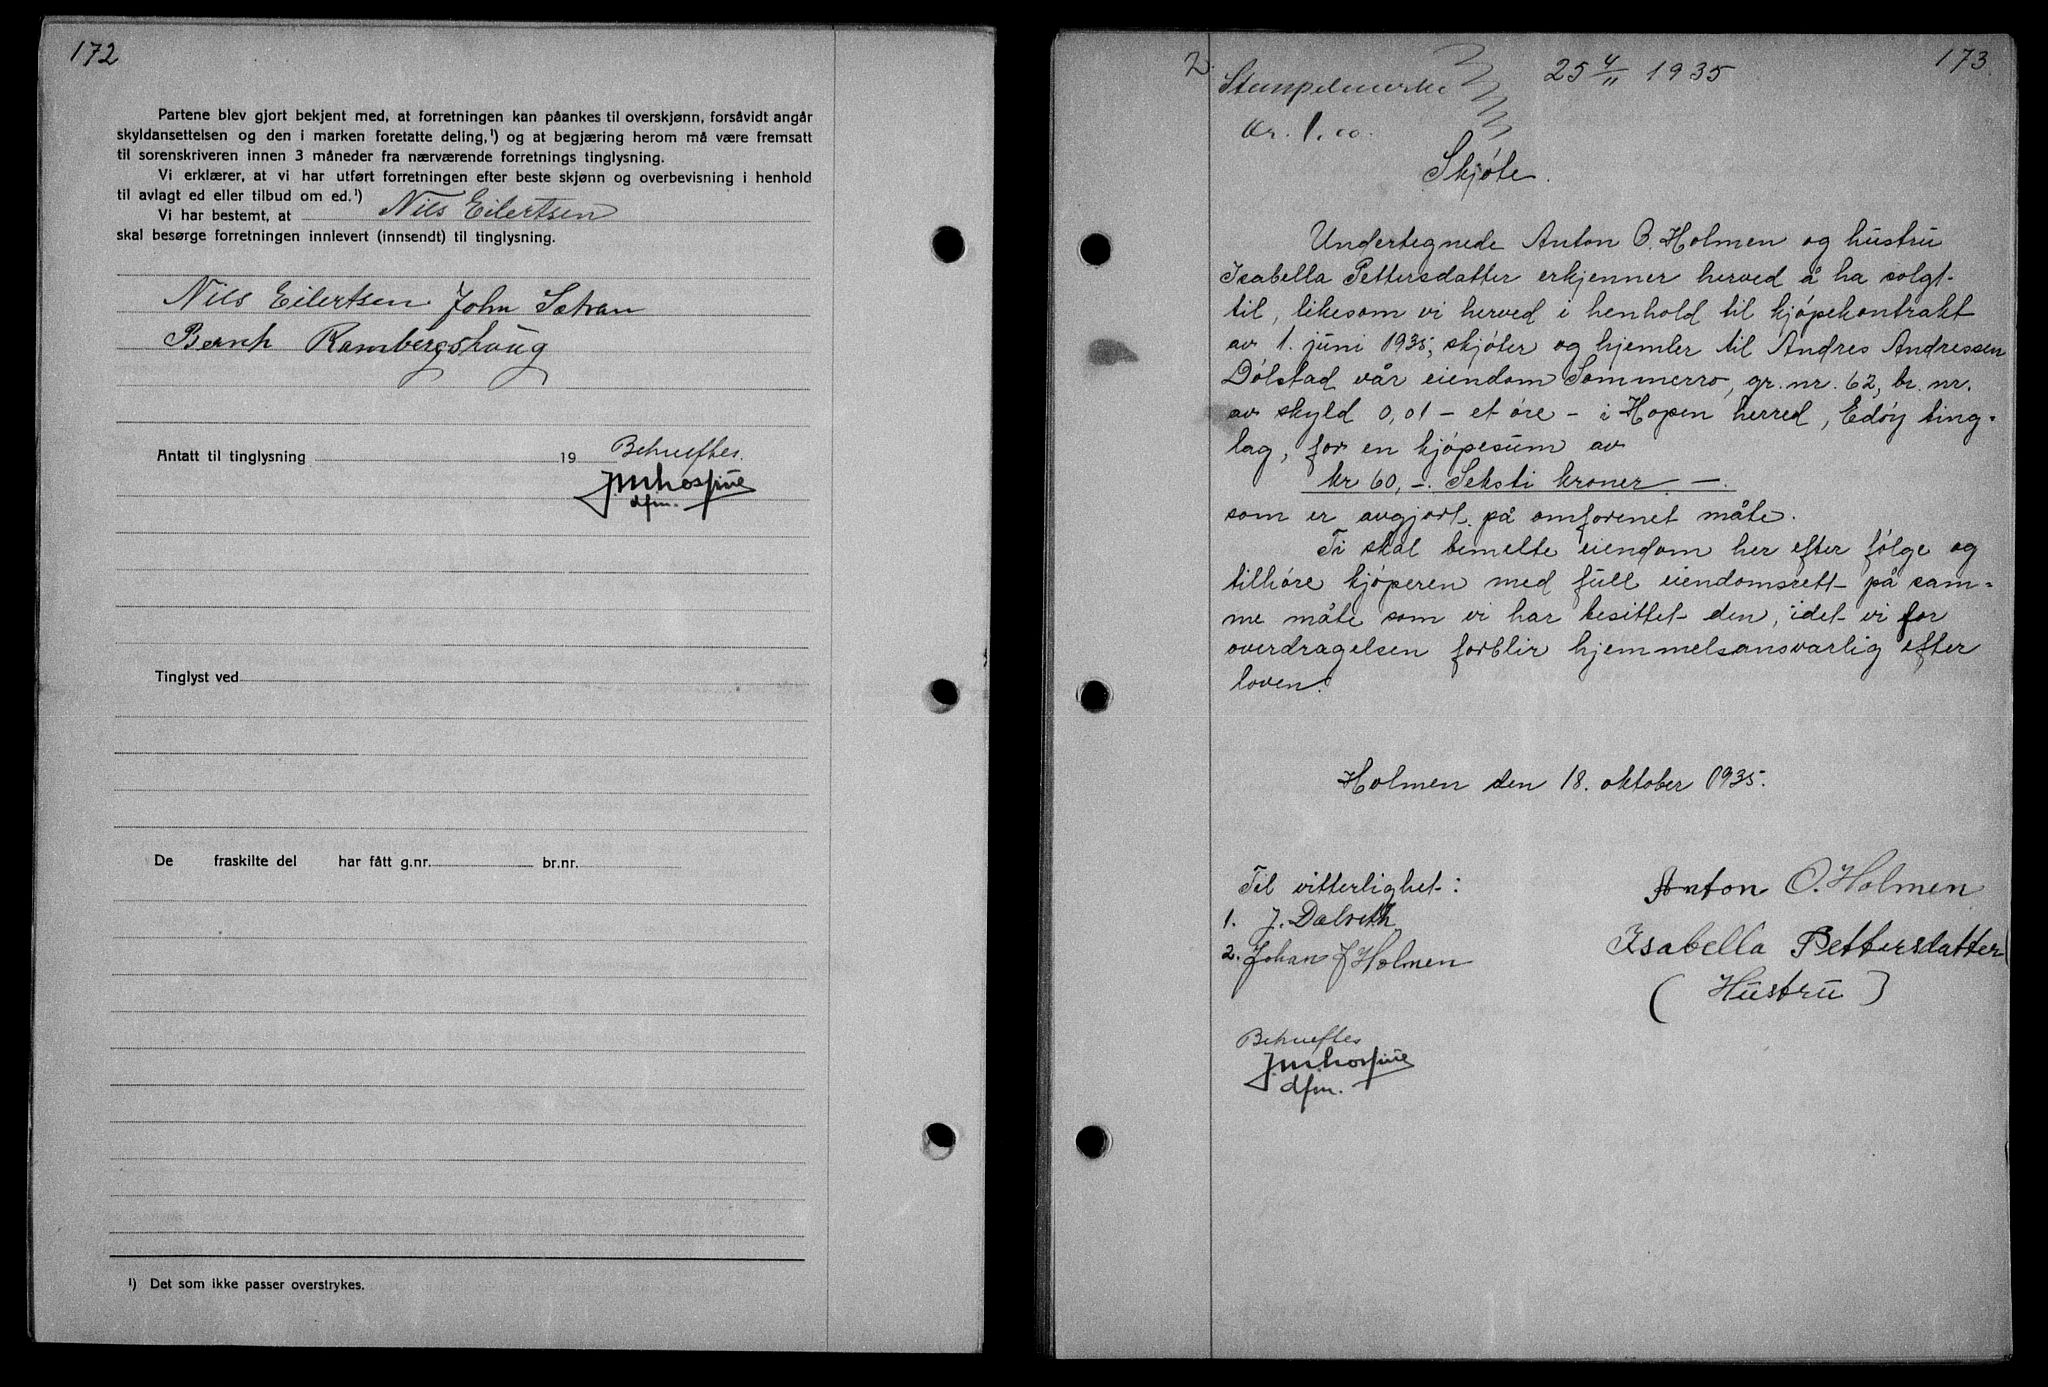 172
Partene blev gjort bekjent med, at forretningen kan påankes til overskjønn, forsåvidt angår
skyldansettelsen og den i marken foretatte deling,¹) og at begjæring herom må være fremsatt
til sorenskriveren innen 3 måneder fra nærværende forretnings tinglysning.
Vi erklærer, at vi har utført forretningen efter beste skjønn og overbevisning i henhold
til avlagt ed eller tilbud om ed.¹)
Vi har bestemt, at Nils Eilertsen
skal besørge forretningen innlevert (innsendt) til tinglysning.
Nils Eilertsen John Sætran
Bernh Rambergshaug
Antatt til tinglysning 19
Bekreftes
dfm.
Tinglyst ved
De fraskilte del har fått g.nr. br.nr.
¹) Det som ikke passer overstrykes.
173
2. Stempelmerke 25 4/11 1935
kr. 1.00.
Skjøte.
Undertegnede Anton O. Holmen og hustru
Isabella Pettersdatter erkjenner herved å ha solgt
til, likesom vi herved i henhold til kjøpekontrakt
av 1. juni 1935, skjøter og hjemler til Andres Andressen
Dølstad vår eiendom Sommerro, gr. nr. 62, br. nr.
av skyld 0,01 - et øre - i Hopen herred, Edøy ting=
lag, for en kjøpesum av
kr 60, -. Seksti kroner -.
som er avgjort på omforenet måte.
Ti skal bemelte eiendom her efter følge og
tilhøre kjøperen med full eiendomsrett på sam=
me måte som vi har besittet den, idet vi for
overdragelsen forblir hjemmelsansvarlig efter
loven.
Holmen den 18. oktober 1935.
Til vitterlighet: Anton O. Holmen
1. J. Dalseth Isabella Pettersdatter
2. Johan J Holmen (Hustru)
Bekreftes
dfm.